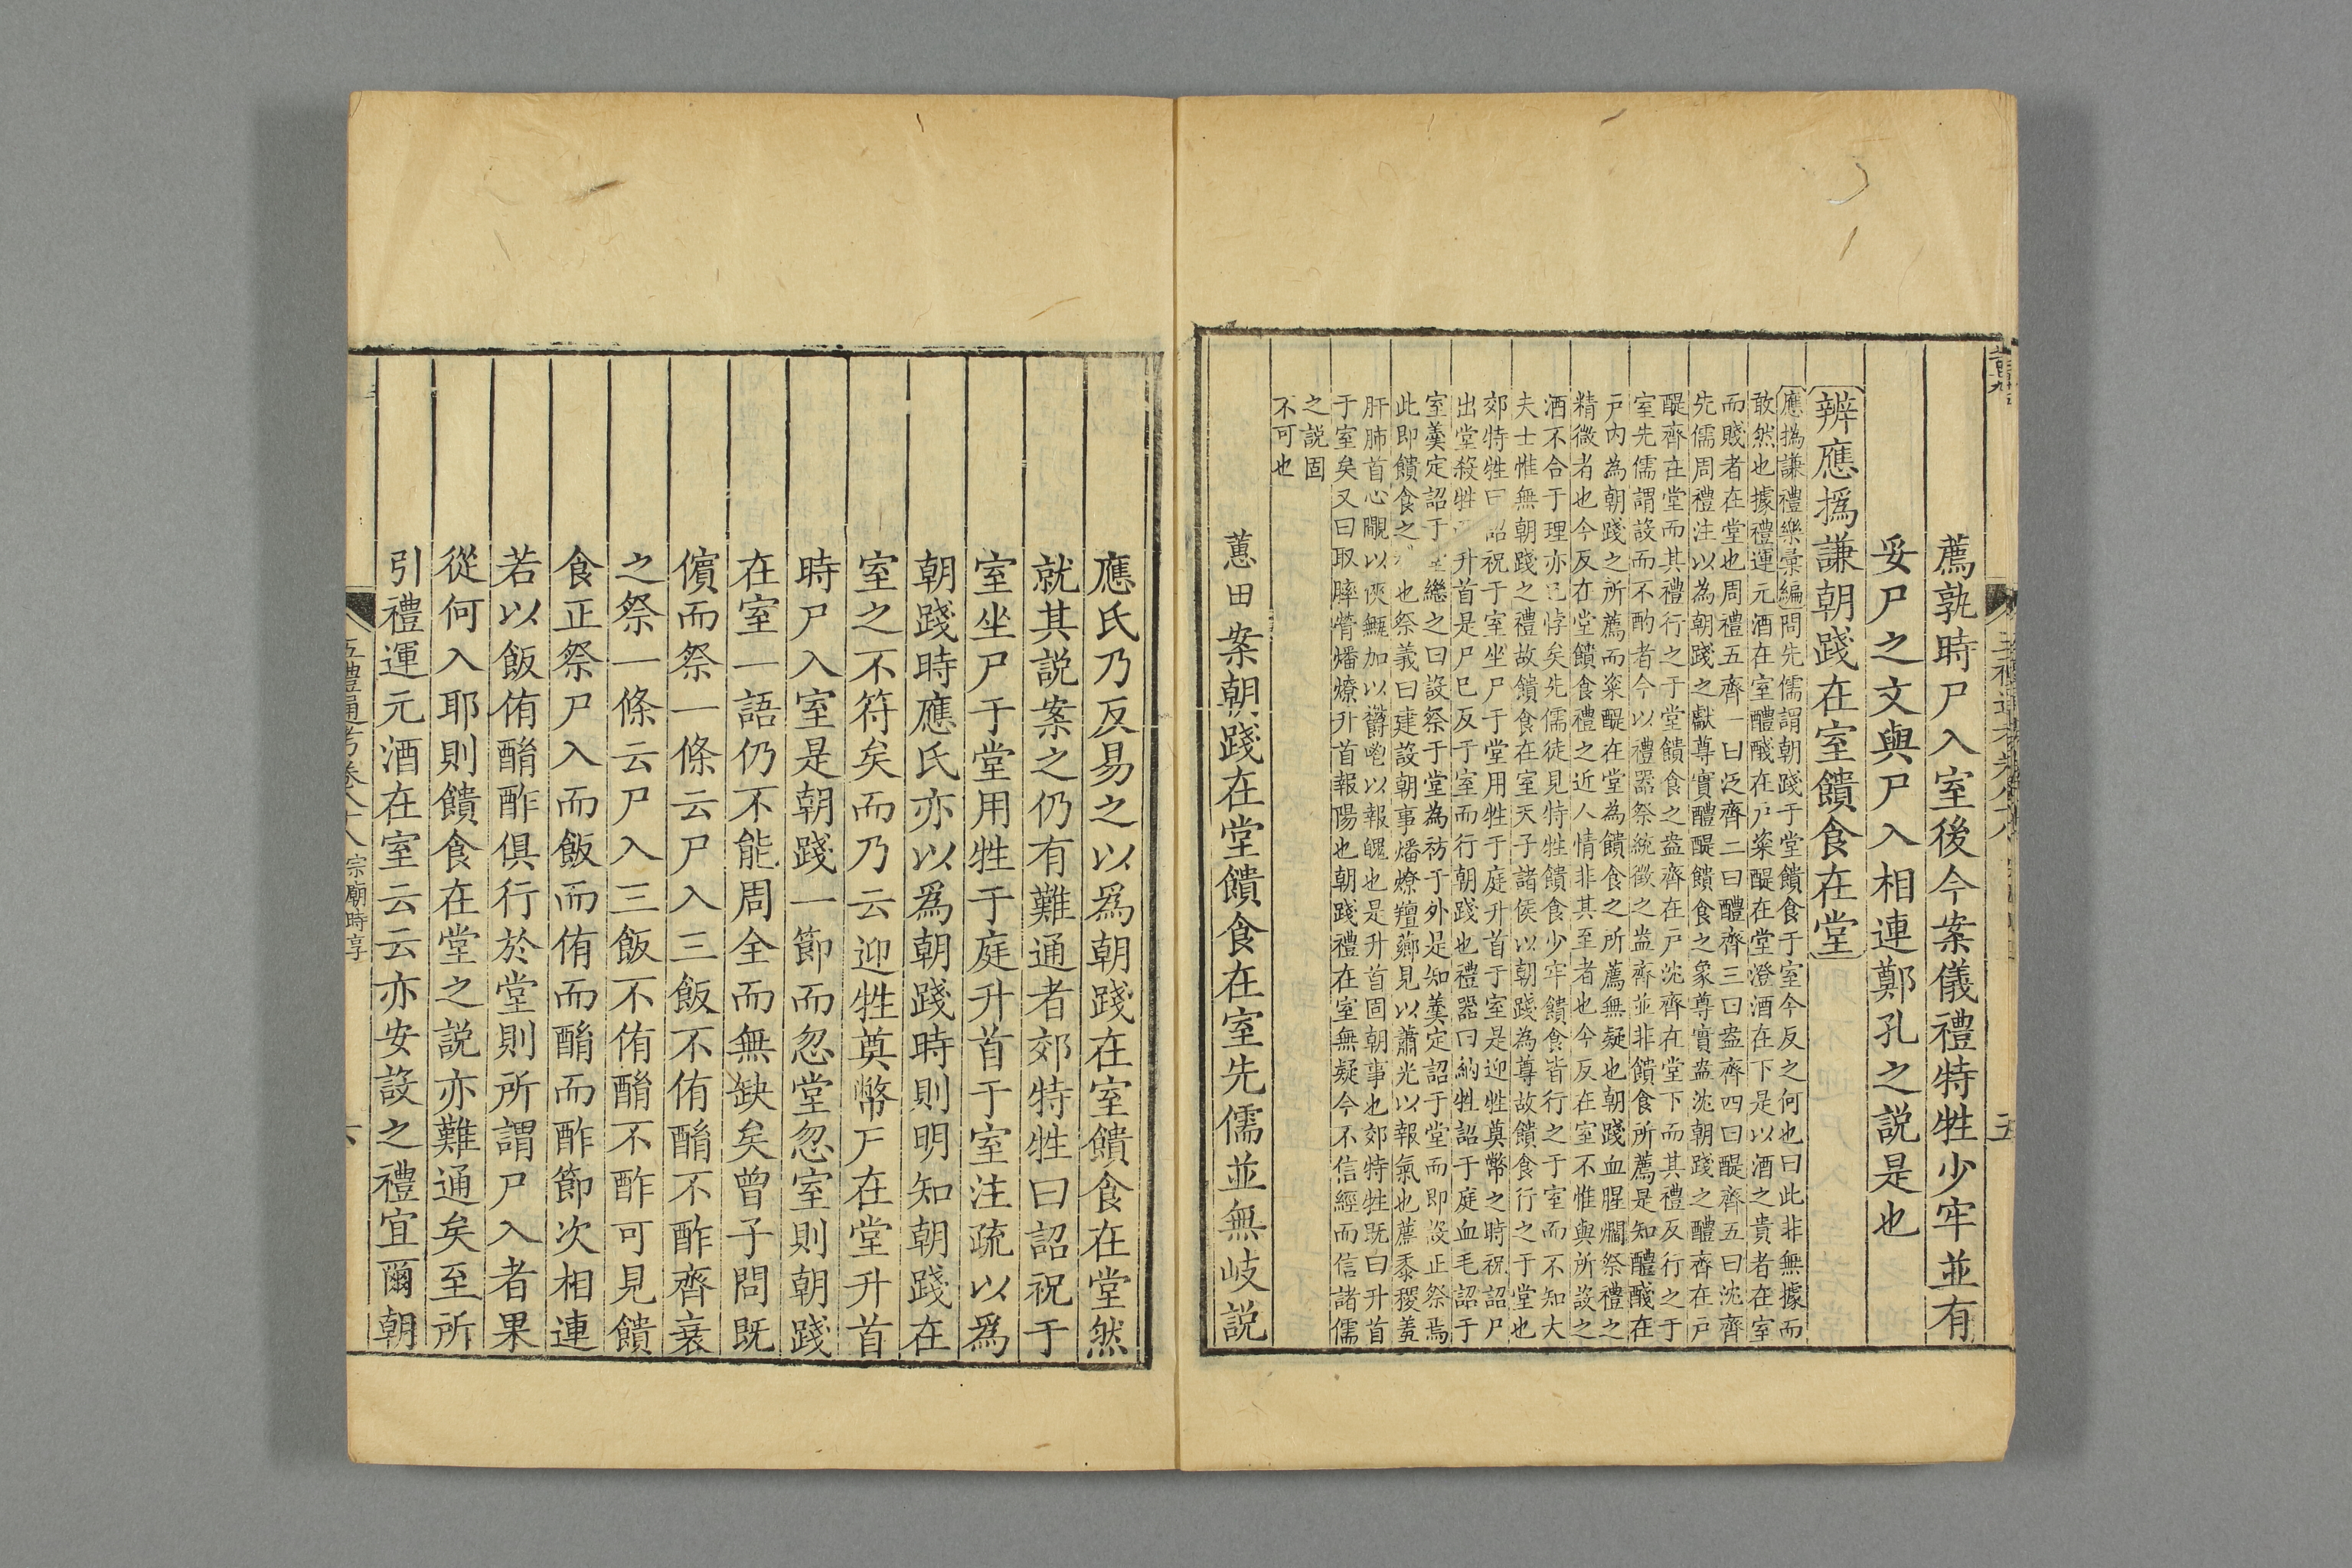 薦孰時尸入室後今案儀禮特牲少牢並有
妥尸之文與尸入相連鄭孔之説是也
辨應撝謙朝踐在室饋食在堂
應撝謙禮樂彚編問先儒謂朝踐于堂饋食于室今反之何也曰此非無據而
敢然也據禮運元酒在室醴醆在戸粢醍在堂澄酒在下是以酒之貴者在室
而賤者在堂也周禮五齊一曰泛齊二曰醴齊三曰盎齊四曰醍齊五曰沈齊
先儒周禮注以為朝踐之獻尊實醴醍饋食之象尊實盎沈朝踐之醴齊在戸
醍齊在堂而其禮行之于堂饋食之盎齊在戸沈齊在堂下而其禮反行之于
室先儒謂設而不酌者今以禮器祭統徵之盎齊並非饋食所薦是知醴醆在
戸內為朝踐之所薦而粢醍在堂為饋食之所薦無疑也朝踐血腥爓祭禮之
精微者也今反在堂饋食禮之近人情非其至者也今反在室不惟與所設之
酒不合于理亦已悖矣先儒徒見特牲饋食少牢饋食皆行之于室而不知大
夫士惟無朝踐之禮故饋食在室天子諸侯以朝踐為尊故饋食行之于堂也
郊特牲曰詔祝于室坐尸于堂用牲于庭升首于室是迎牲奠幣之時祝詔尸
出堂殺牲升首是尸巳反于室而行朝踐也禮器曰納牲詔于庭血毛詔于
室羮定詔于繼之曰設祭于堂為祊于外是知羮定詔于堂而即設正祭焉
此即饋食之也祭義曰建設朝事燔燎羶薌見以蕭光以報氣也薦黍稷羞
肝肺首心覵以俠甒加以鬱鬯以報魄也是升首固朝事也郊特牲既曰升首
于室矣又曰取膟膋燔燎升首報陽也朝踐禮在室無疑今不信經而信諸儒
之説固
不可也
蕙田案朝踐在堂饋食在室先儒並無岐説
應氏乃反易之以爲朝踐在室饋食在堂然
就其説案之仍有難通者郊特牲曰詔祝于
室坐尸于堂用牲于庭升首于室注疏以爲
朝踐時應氏亦以爲朝踐時則明知朝踐在
室之不符矣而乃云迎牲奠幣尸在堂升首
時尸入室是朝踐一節而忽堂忽室則朝踐
在室一語仍不能周全而無缺矣曾子問既
儐而祭一條云尸入三飯不侑酳不酢齊衰
之祭一條云尸入三飯不侑酳不酢可見饋
食正祭尸入而飯而侑而酳而酢節次相連
若以飯侑酳酢俱行於堂則所謂尸入者果
從何入耶則饋食在堂之説亦難通矣至所
引禮運元酒在室云云亦安設之禮宜爾朝
五禮通考卷八十八 宗廟時享